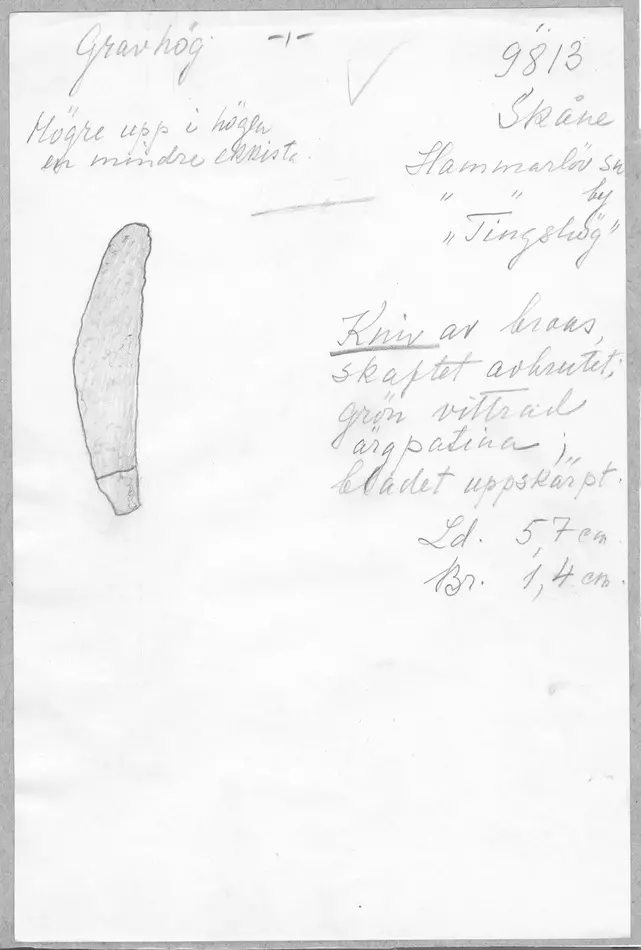 Gravhög. -1-
9813
Skåne
Högre upp i högen
en mindre ekkista.
Hammarlöv sn
" " by
"Tingshög"
Kniv av brons,
skaftet avbrutet;
grön vittrad
ärgpatina;
bladet uppskärpt.
Ld. 5,7 cm.
Br. 1,4 cm.